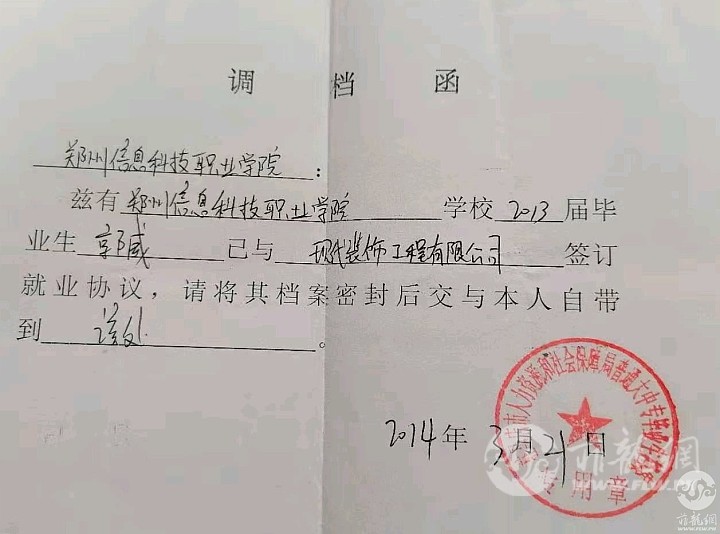 调档函
郑州信息科技职业学院：
兹有郑州信息科技职业学院学校2013届毕
业生郭威已与现代装饰工程有限公司签订
就业协议，请将其档案密封后交与本人自带
到该处。
2014年3月21日
市人力资源和社会保障局普通大中专
专用章
菲龍網
WWW.FLW.PH
菲龍網